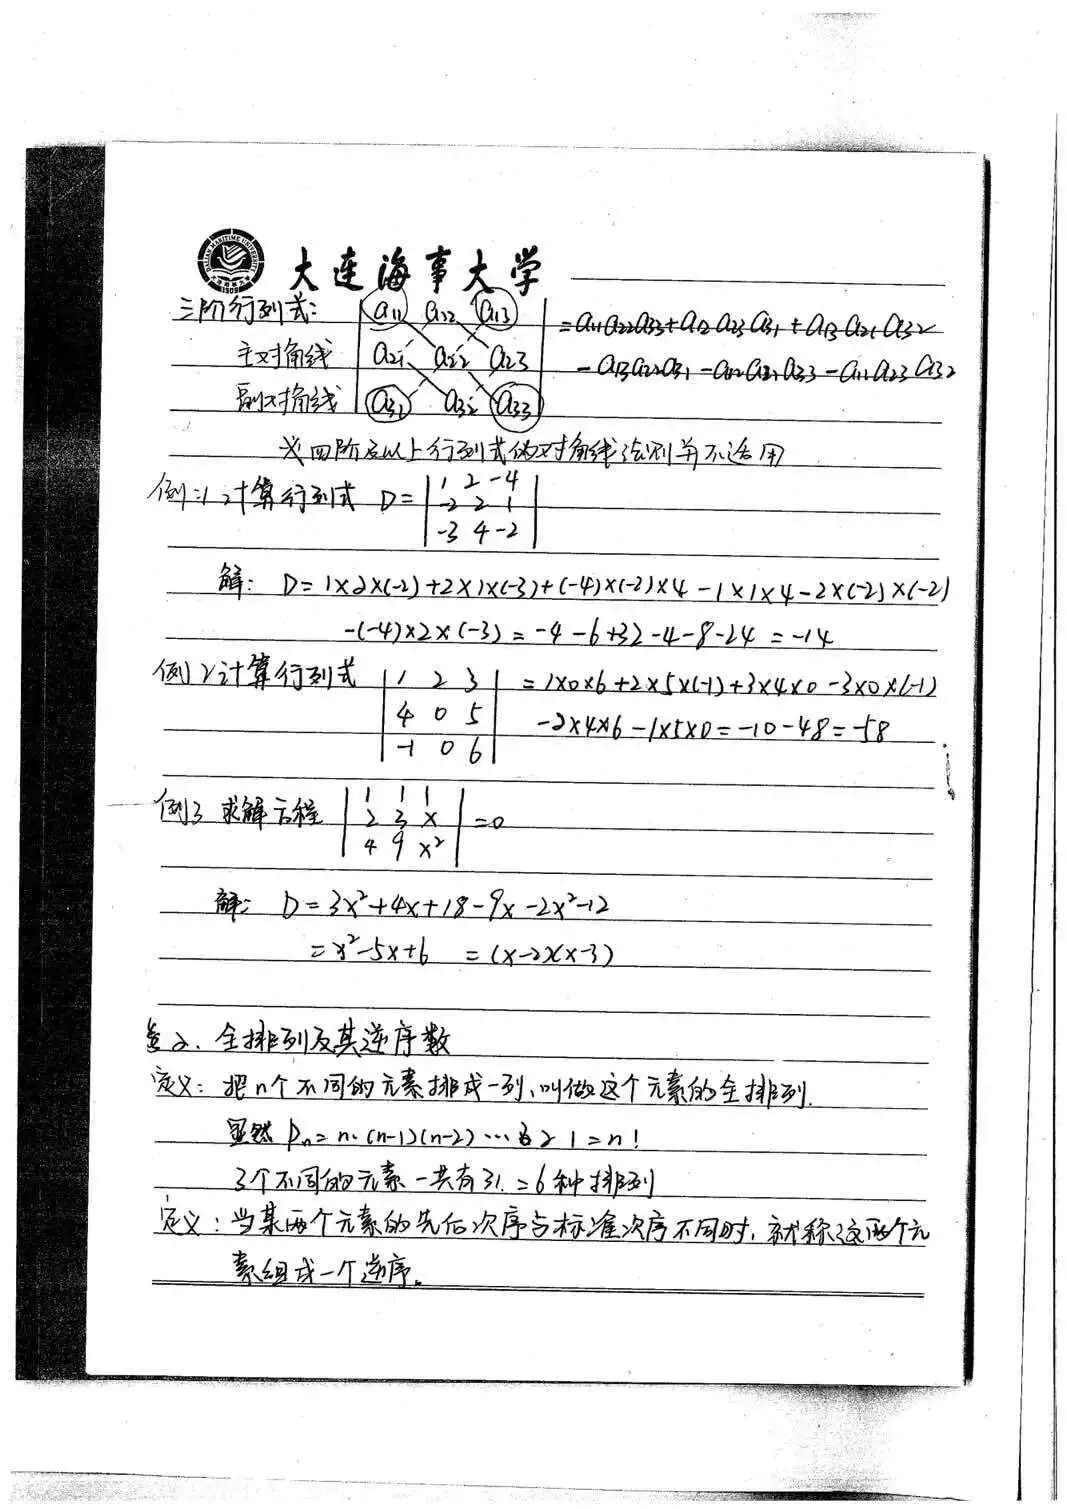 大连海事大学
DALIAN MARITIME UNIVERSITY
1909
三阶行列式: | a11 a12 a13 | = a11a22a33+a12a23a31+a13a21a32
主对角线 | a21 a22 a23 | -a13a22a31-a12a21a33-a11a23a32
副对角线 | a31 a32 a33 |
四阶及以上行列式的对角线法则并不适用
例:1 计算行列式 D= | 1 2 -4 |
| -2 2 1 |
| -3 4 -2 |
解: D=1×2×(-2)+2×1×(-3)+(-4)×(-2)×4-1×1×4-2×(-2)×(-2)
-(-4)×2×(-3)=-4-6+32-4-8-24=-14
例2 计算行列式 | 1 2 3 | =1×0×6+2×5×(-1)+3×4×0-3×0×(-1)
| 4 0 5 | -2×4×6-1×5×0=-10-48=-58
| -1 0 6 |
例3 求解方程 | 1 1 1 |
| 2 3 x | =0
| 4 9 x² |
解: D=3x²+4x+18-9x-2x²-12
=x²-5x+6 =(x-2)(x-3)
2、全排列及其逆序数
定义:把n个不同的元素排成一列,叫做这个元素的全排列.
显然 Pn=n·(n-1)(n-2)…2 1=n!
3个不同的元素一共有3!=6种排列
定义:当某两个元素的先后次序与标准次序不同时,就称这两个元
素组成一个逆序。